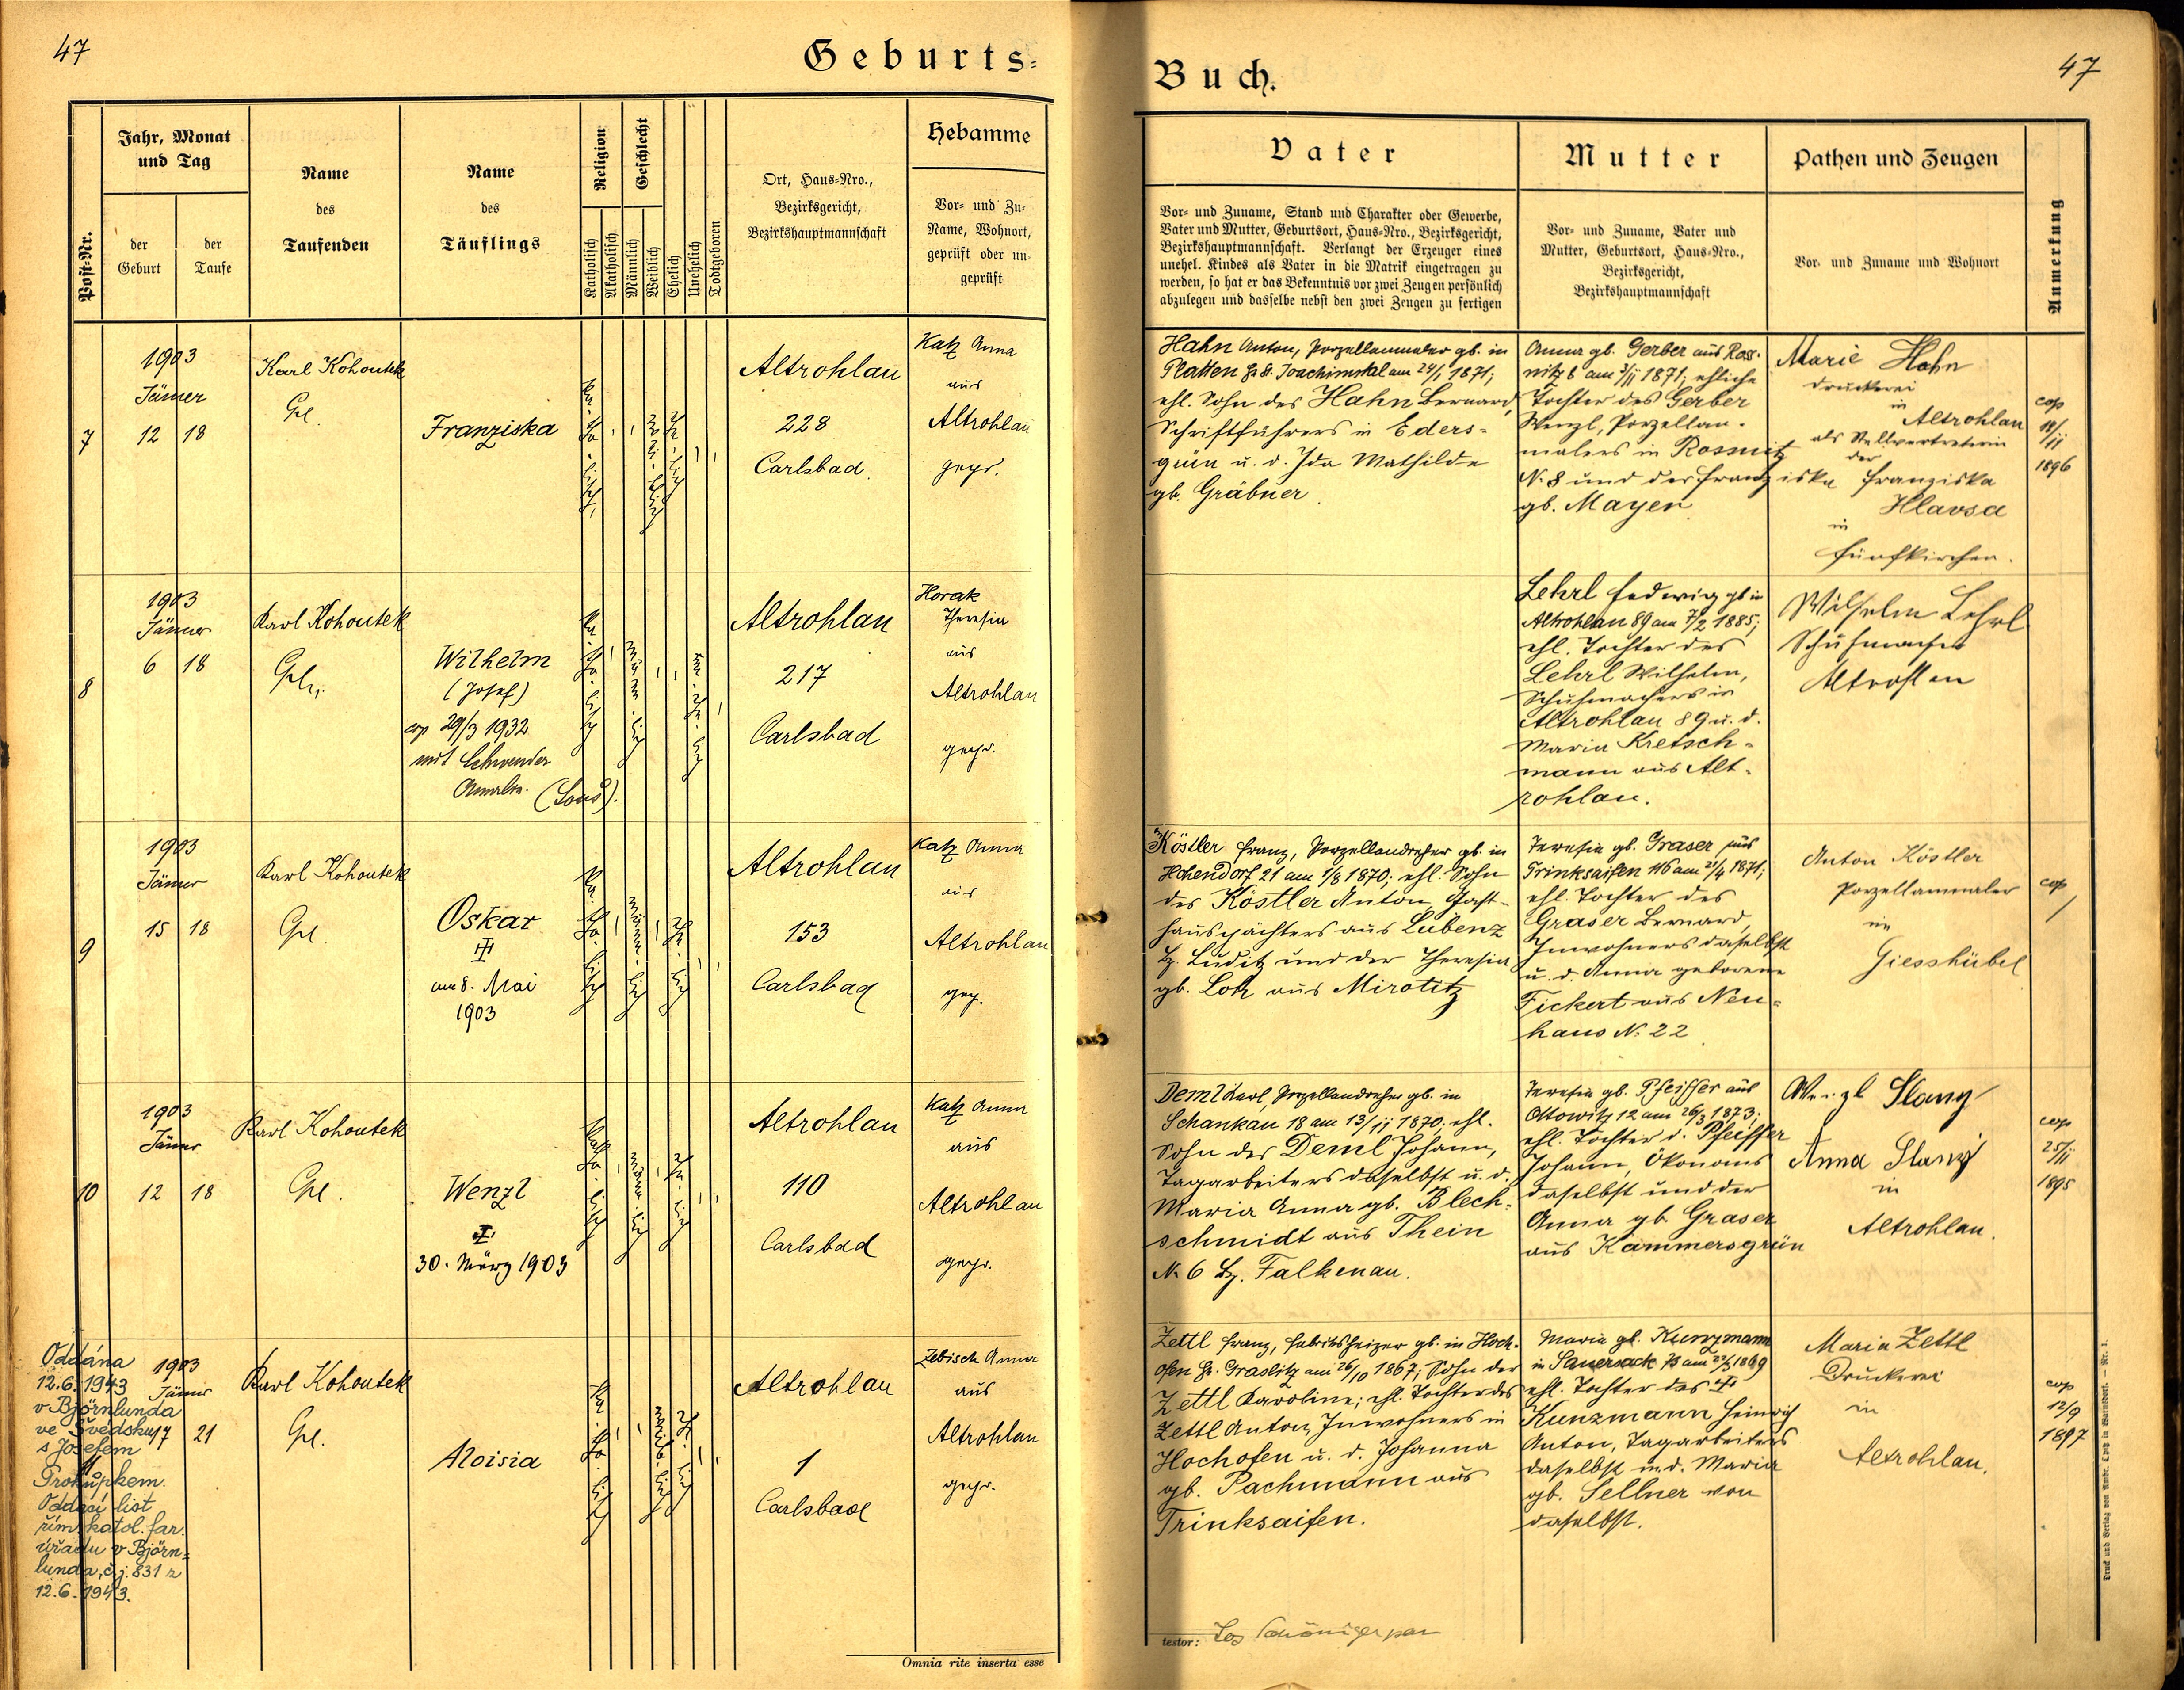 47
Geburts-
Jahr, Monat
und Tag
Post-Nr.
der
Geburt
der
Taufe
Name
des
Taufenden
Name
des
Täuflings
Religion
Katholisch
Akatholisch
Geschlecht
Männlich
Weiblich
Ehelich
Unehelich
Todtgeboren
Ort, Haus-Nro.,
Bezirksgericht,
Bezirkshauptmannschaft
Hebamme
Vor- und Zu-
Name, Wohnort,
geprüft oder un-
geprüft
7
1903
Jänner
12 18
Karl Kohoutek
Gpl.
Franziska
Katholisch
Weiblich
Ehelich
Altrohlau
228
Carlsbad
Katz Anna
aus
Altrohlau
gepr.
8
1903
Jänner
6 18
Karl Kohoutek
Wilhelm
(Josef)
cop 29/3 1932
mit Schwender
Amalie.
Katholisch
Männlich
Unehelich
Altrohlau
217
Carlsbad
Horak
Theresia
aus
Altrohlau
gepr.
9
1903
Jänner
15 18
Karl Kohoutek
Gpl.
Oskar
am 8. Mai
1903
Katholisch
Männlich
Ehelich
Altrohlau
153
Carlsbad
Katz Anna
aus
Altrohlau
gep.
10
1903
Jänner
12 18
Karl Kohoutek
Gpl.
Wenzl
30. März 1903
Katholisch
Männlich
Ehelich
Altrohlau
110
Carlsbad
Katz Anna
aus
Altrohlau
gepr.
Oddána
12.6.1943
v Björnlunda
ve Švédsku
s Josefem
Prokůpkem.
Oddací list
řím. katol. far.
úřadu v Björn-
lunda, č.j. 831 z
12.6.1943.
1903
Jänner
17 21
Karl Kohoutek
Gpl.
Aloisia
Katholisch
Weiblich
Ehelich
Altrohlau
1
Carlsbad
Zebisch Anna
aus
Altrohlau
gepr.
Omnia rite inserta esse
47
Buch.
Vater
Vor- und Zuname, Stand und Charakter oder Gewerbe,
Vater und Mutter, Geburtsort, Haus-Nro., Bezirksgericht,
Bezirkshauptmannschaft. Verlangt der Erzeuger eines
unehel. Kindes als Vater in die Matrik eingetragen zu
werden, so hat er das Bekenntnis vor zwei Zeugen persönlich
abzulegen und dasselbe nebst den zwei Zeugen zu fertigen
Mutter
Vor- und Zuname, Vater und
Mutter, Geburtsort, Haus-Nro.,
Bezirksgericht,
Bezirkshauptmannschaft
Pathen und Zeugen
Vor- und Zuname und Wohnort
Anmerkung
Hahn Anton, Porzellanmaler gb. in
Platten Joachimstal am 24/1 1871;
ehl. Sohn des Hahn Bernard,
Schriftführers in Eders-
grün u. d. Ida Mathilde
gb. Gräbner.
Anna gb. Gerber aus Ross-
nitz 8 am 3/11 1871; eheliche
Tochter des Gerber
Wenzl, Porzellan-
malers in Rossnitz
N. 8 und der Franziska
gb. Mayer
Marie Hahn
Druckerei
in
Altrohlau
als Stellvertreterin
der
Franziska
Hlavsa
in
Fünfkirchen.
cop
18/11
1896
Lehrl Hedwig gb in
Altrohlau 89 am 7/2 1885;
ehl. Tochter des
Lehrl Wilhelm,
Schuhmachers in
Altrohlau 89 u. d.
Maria Kretsch-
mann aus Alt-
rohlau.
Wilhelm Lehrl
Schuhmacher
Altrohlau
Köstler Franz, Porzellandreher gb. in
Hohendorf 21 am 1/8 1870; ehl. Sohn
des Köstler Anton, Gast-
hauspächters aus Lubenz
Bz. Luditz und der Theresia
gb. Lotz aus Mirotitz
Teresia gb. Graser aus
Trinksaifen 116 am 21/4 1871;
ehl. Tochter des
Graser Bernard,
Inwohners daselbst
u. d. Anna geborene
Fickert aus Neu-
haus N. 22
Anton Köstler
Porzellanmaler
in
Giesshübel
cop
Deml Karl, Porzellandreher gb. in
Schankau 18 am 13/11 1870; ehl.
Sohn des Deml Johann,
Tagarbeiters daselbst u. d.
Maria Anna gb. Blech-
schmidt aus Thein
N. 6 Bz. Falkenau.
Teresia gb. Pfeiffer aus
Ottowitz 12 am 26/3 1873;
ehl. Tochter d. Pfeiffer
Johann, Ökonoms
daselbst und der
Anna gb Graser
aus Kammersgrün
Wenzl Slany
Anna Slany
in
Altrohlau.
cop
25/11
1895
Zettl Franz, Fabriksheizer gb. in Hoch-
ofen Graslitz am 26/10 1867; Sohn der
Zettl Karoline; ehl. Tochter des
Zettl Anton, Inwohners in
Hochofen u. d. Johanna
gb. Pachmann aus
Trinksaifen.
Maria gb. Kunzmann
in Sauersack 73 am 22/3 1869
ehl. Tochter des
Kunzmann Heinrich
Anton, Tagarbeiters
daselbst u. d. Maria
gb. Sellner von
daselbst.
Maria Zettl
Druckerei
in
Altrohlau.
cop
12/9
1897
testor:
Druck und Verlag von Ambr. Opitz in Warnsdorf. — Nr. 1.